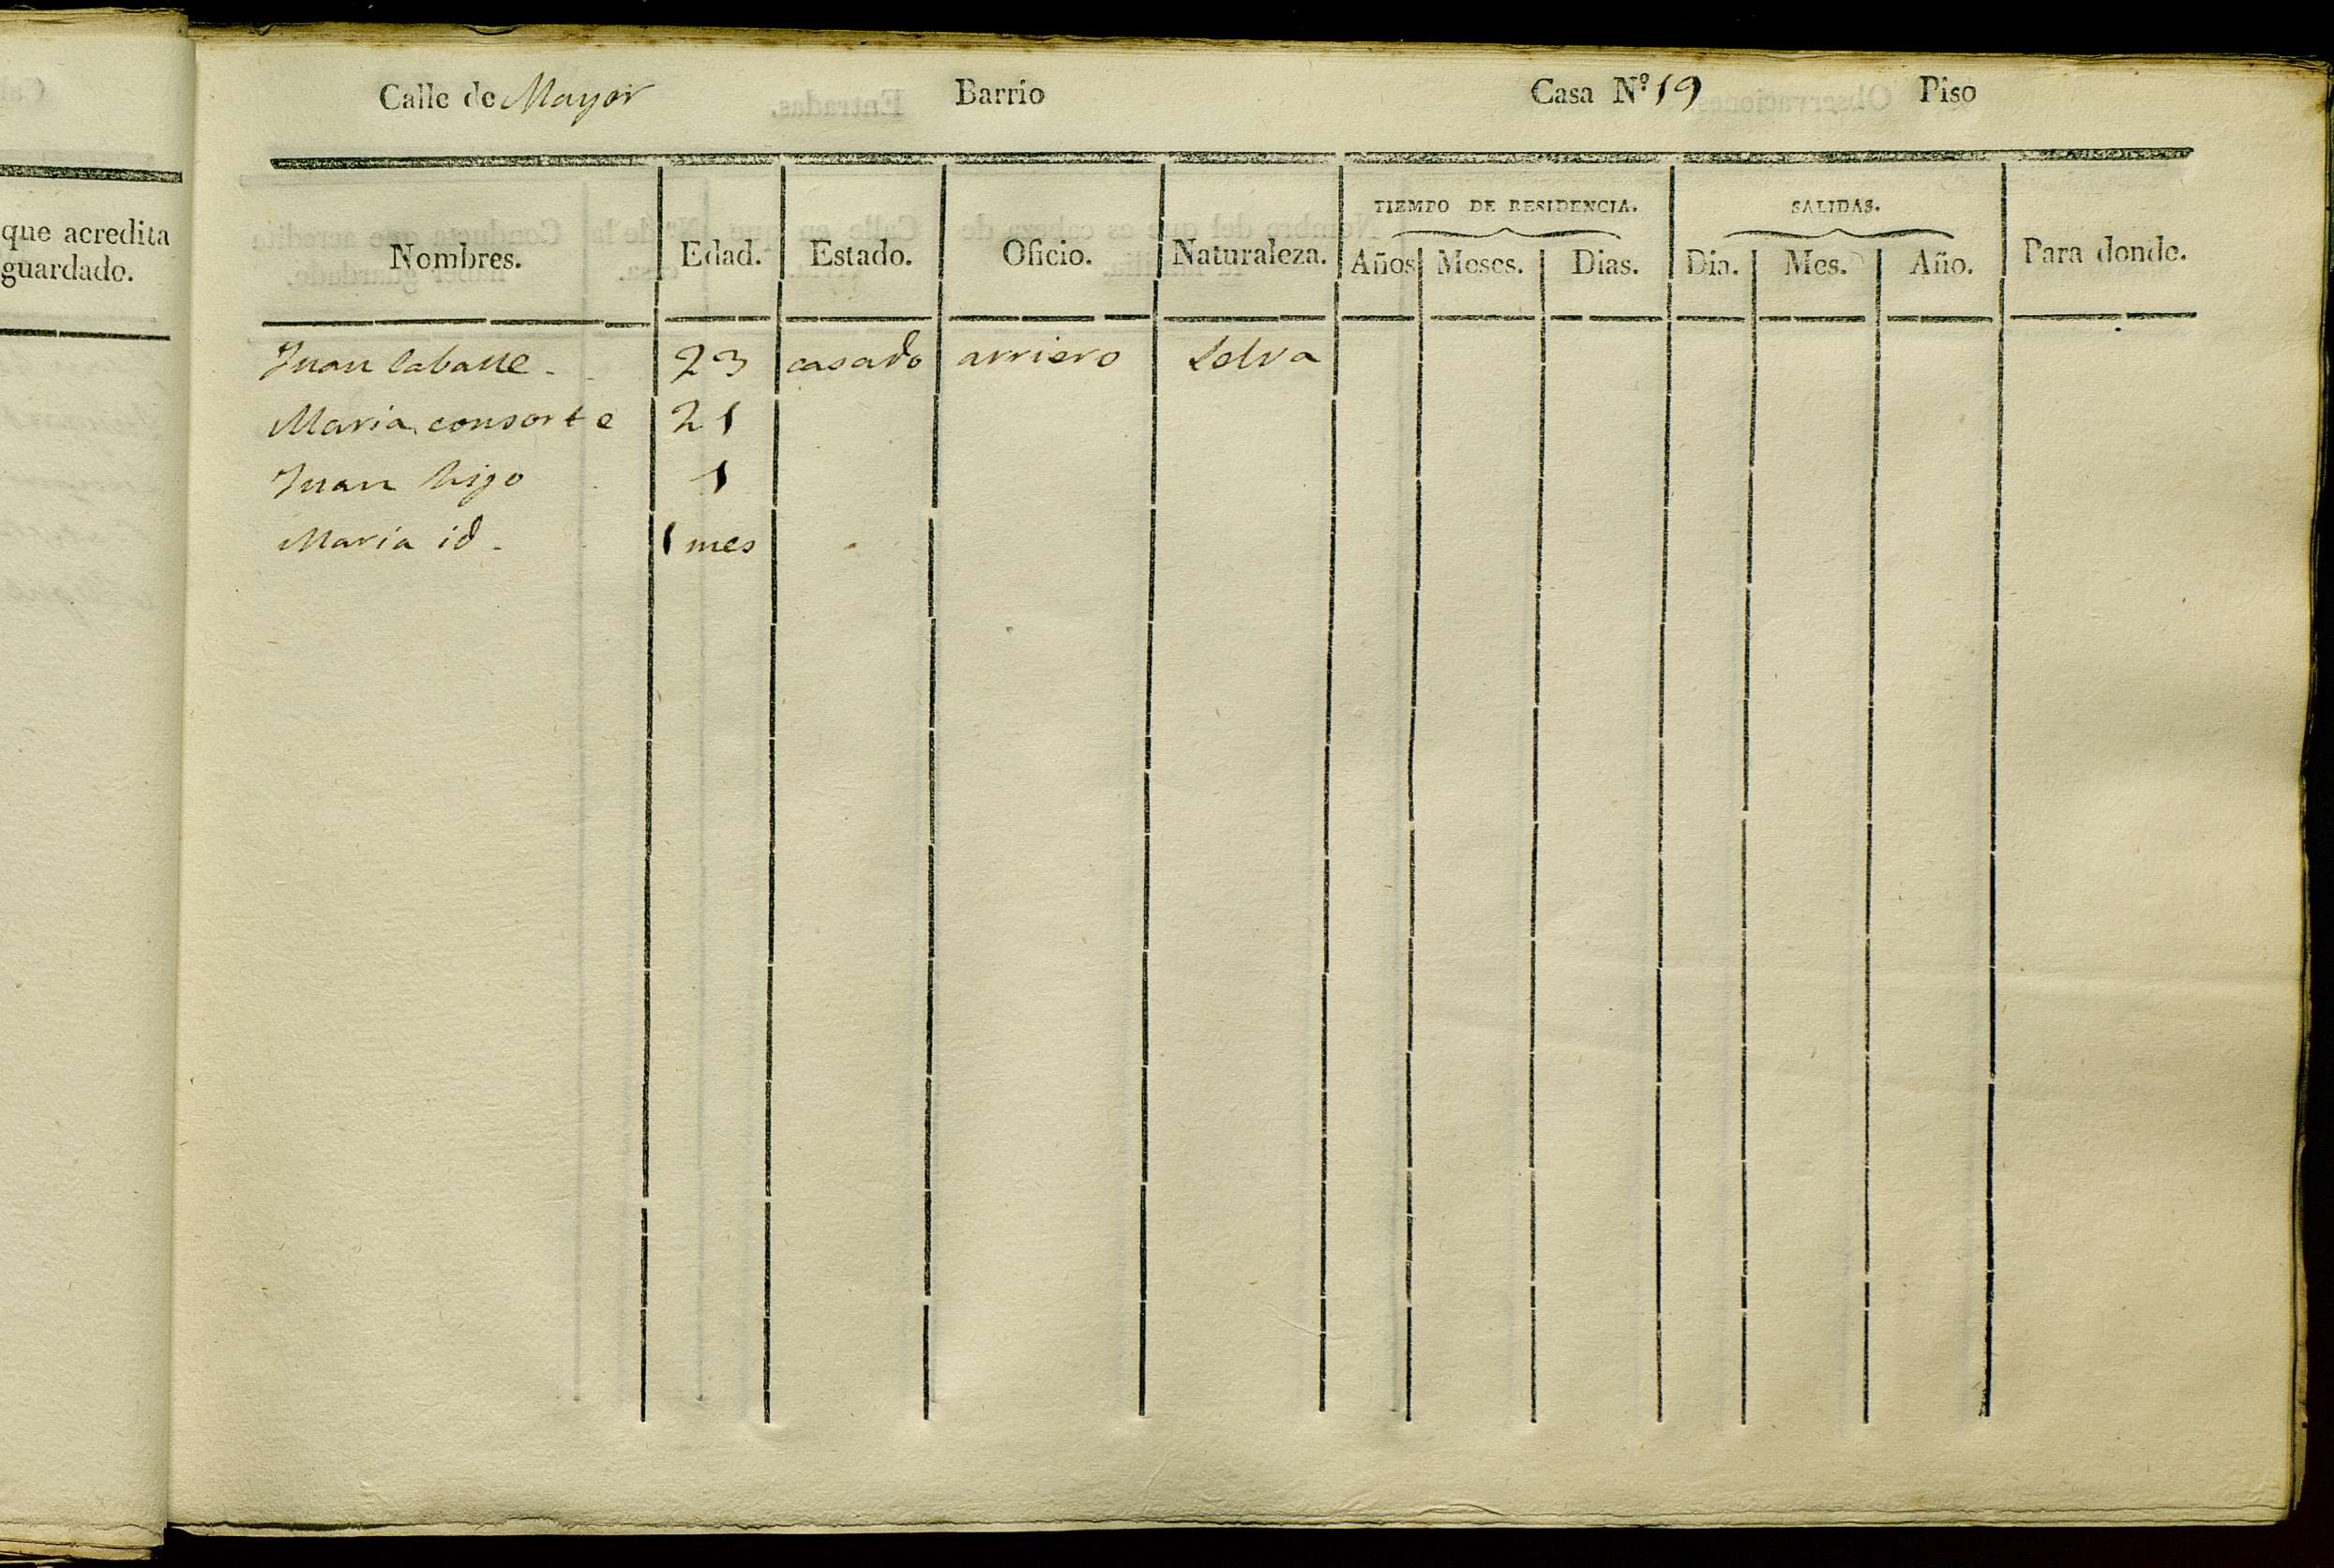 que acredita
guardado.
Calle de Mayor Barrio Casa Nº 19 Piso
TIEMPO DE RESIDENCIA. SALIDAS.
Nombres. Edad. Estado. Oficio. Naturaleza. Años Meses. Dias. Dia. Mes. Año. Para donde.
Juan 23 casado arriero Selva
Maria consorte 21
Juan hijo 1
Maria id. 1 mes